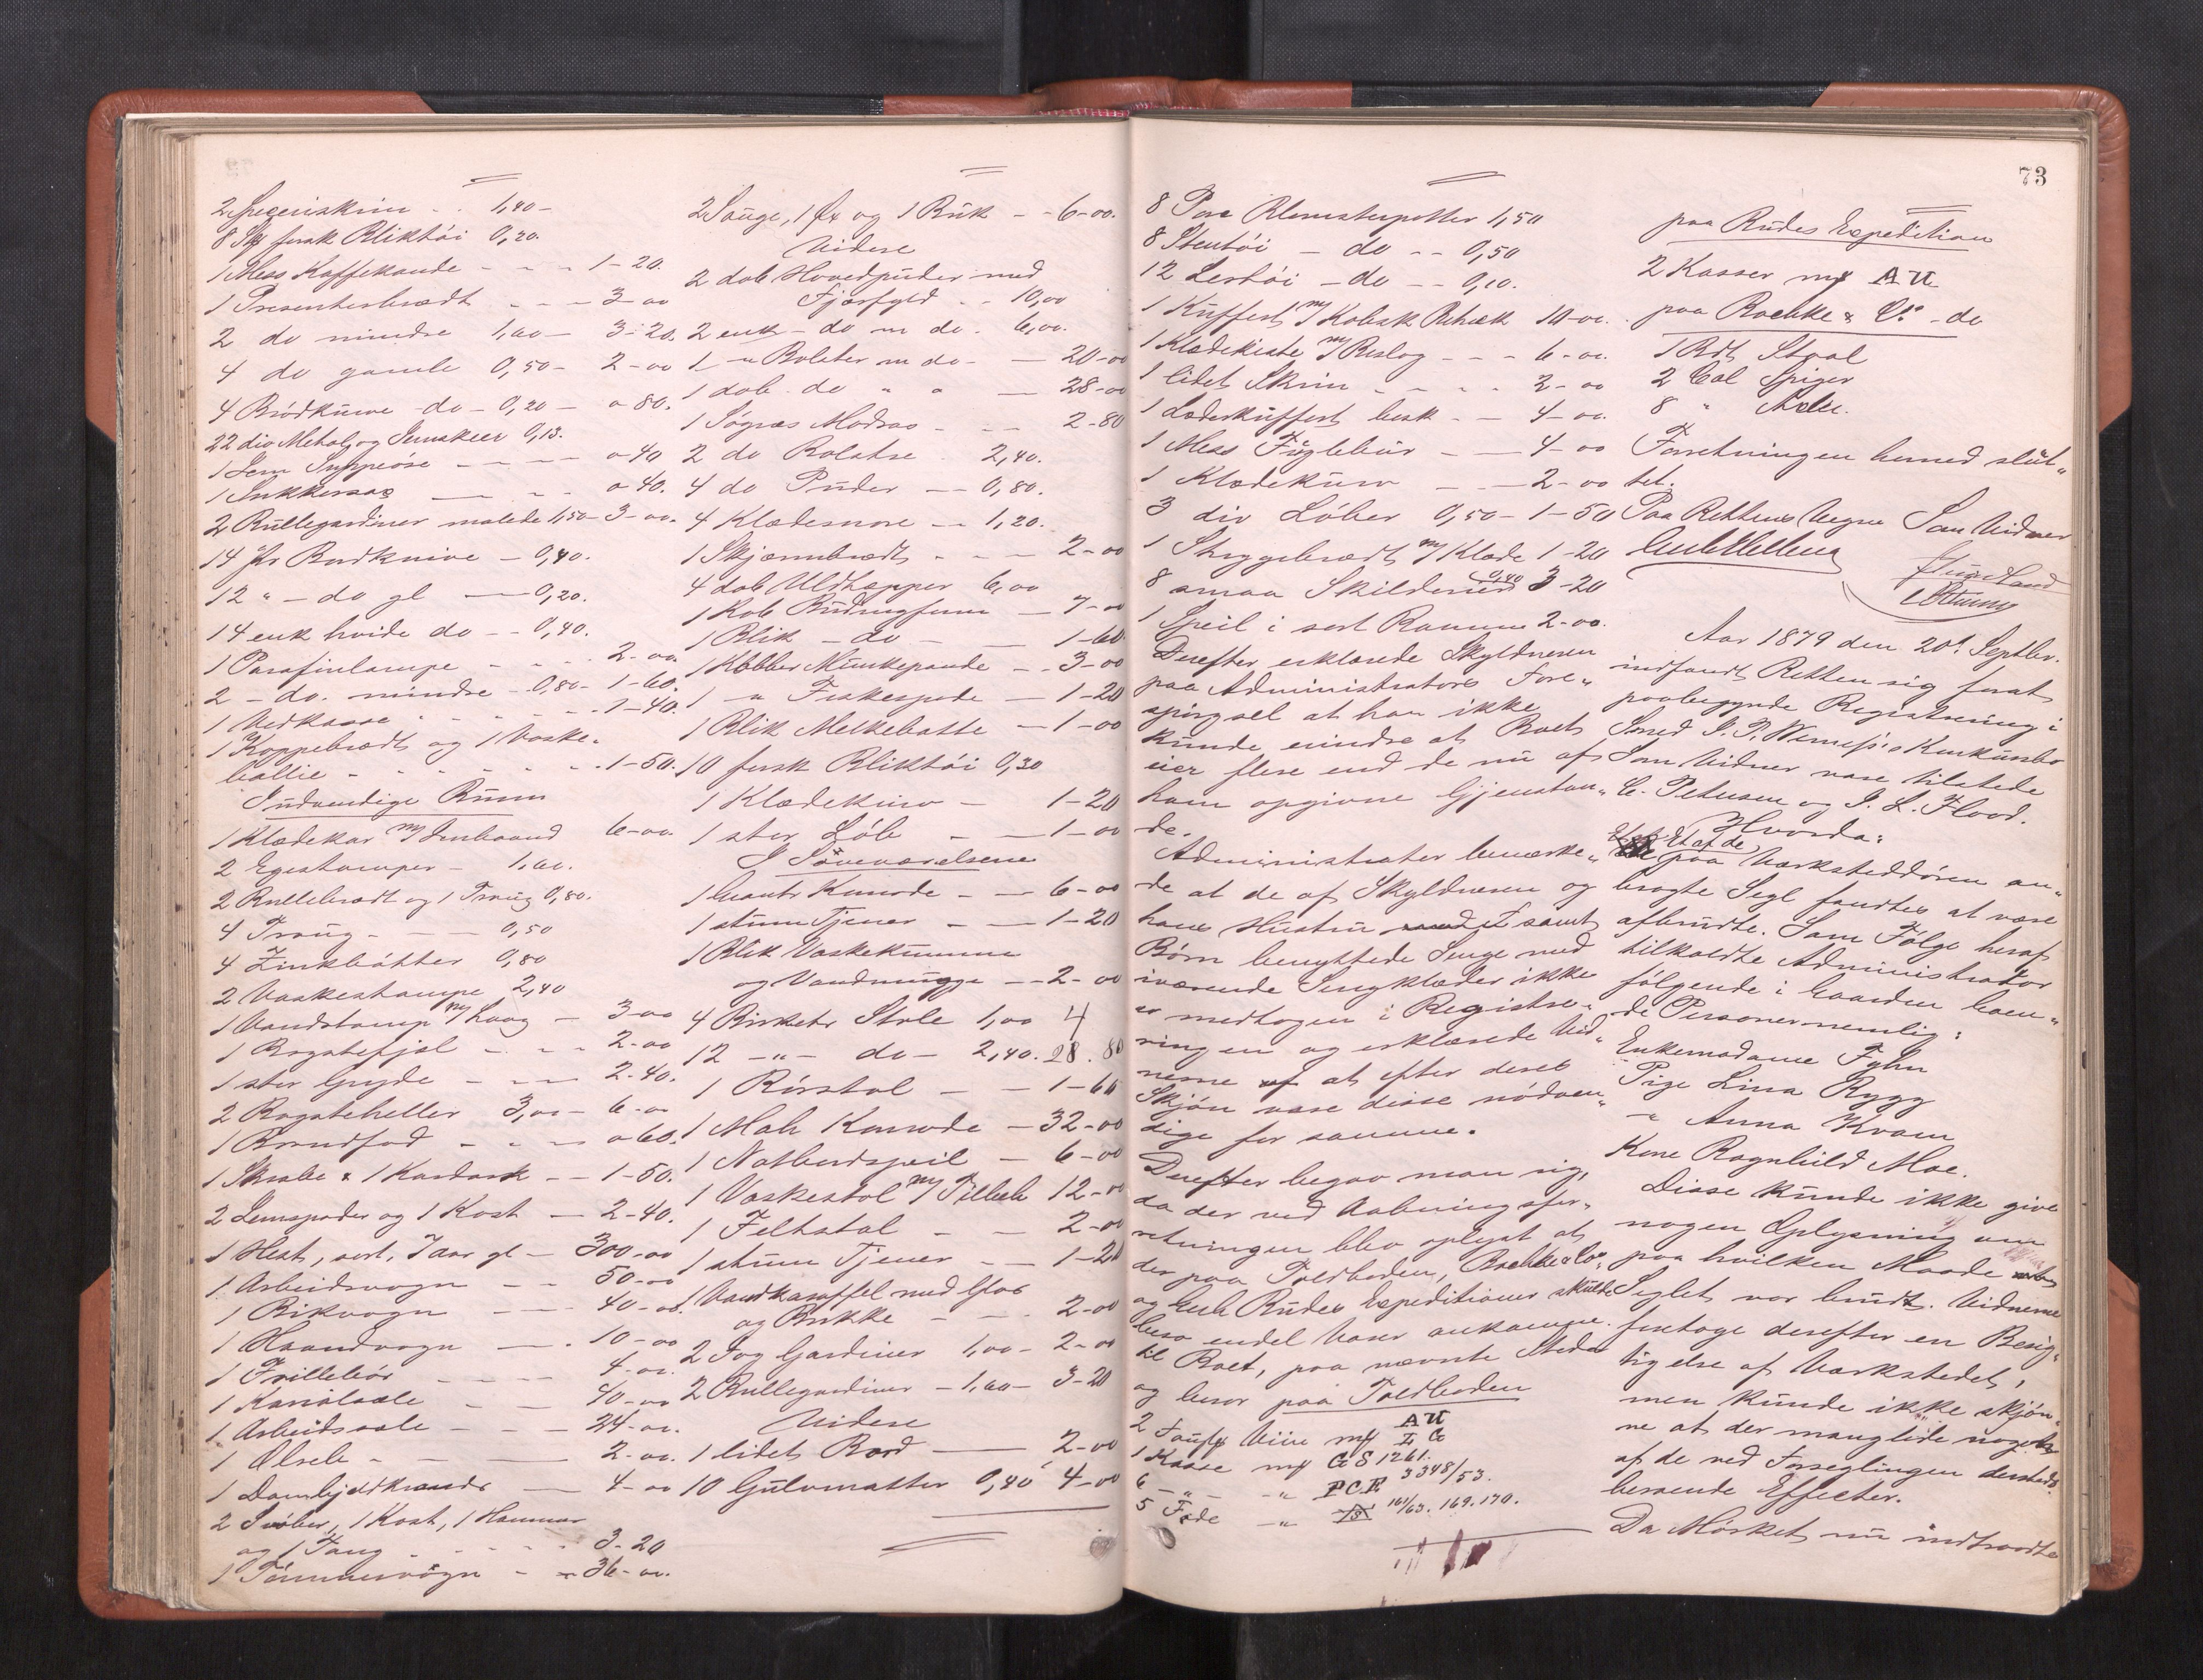 2 Speceriskrin - - 1,40 -
8 Sk fersk Bliktöi 0,20.
1 Mess Kaffekande - - - 1-20.
1 Presenterbrædt - - - 3-00
2 do mindre 1,60 - 3-20.
4 do gamle 0,50 - 2-00
4 Brödkurve do - 0,20 - 0-80.
22 div Metal og Jernskeer 0,13.
1 Lem Suppeöse - - - - 0-40
1 Sukkersax - - - 0-40.
2 Rullegardiner malede 1,50 - 3-00.
14 Pr Bordknive - 0,40.
12 " - do gl - 0,20.
14 enk hvide do - - 0,40.
1 Parafinlampe - - - 2-00.
2 - do. mindre - 0,80 - 1-60.
1 Vedkasse - - - - 1-40.
1 Koppebrædt og 1 Vaske-
ballie - - - - - - 1-50.
Indvendige Rum
1 Klædekar m/ Jernbaand 6-00.
2 Egestamper - 1,60.
2 Rullebrædt og 1 Traug 0,80.
4 Traug - - - 0,50
4 Zinkbötter 0,80
2 Vaskestampe 2,40
1 Vandstamp m/ Laag - 3-00
1 Bagstefjöl - - - 2-00
1 stor Gryde - - - 2-40.
2 Bagsteheller 3,00 - 6-00
1 Brandfad - - - 0-60.
1 Skrabe & 1 Kardask - - 1-50.
2 Jernspader og 1 Kost - 2-40.
1 Hest, sort, 7 aar gl - 300-00
1 Arbeidsvogn - - 50-00
1 Rikvogn - - 40-00.
1 Haandvogn - - 10-00
1 Trillebör - - - - 4-00.
1 Kariolsæle - - 40-00
1 Arbeidssæle - - - 24-00.
1 Ölsele - - - - 2-00.
1 Dombjeldkrands - 4-00
2 Svöber, 1 Kost, 1 Hammer
og 1 Tang - - - - - - 3-20
1 Tömmervogn - - 36-00.
2 Sauge, 1 Öx og 1 Buk - - 6-00.
Videre
2 dob Hovedpuder med
Fjærfyld - - 10,00
2 enk - do m do. 6,00.
1 - " Bolster m do - - 20-00
1 dob. do " " - 28-00
1 Søgræs Madras - - - 2-80
2 do Bolstre - 2,40.
4 do Puder - - 0,80.
4 Klædesnore - - 1,20.
1 Skjærmbrædt - - - 2-00
4 dob Uldtæpper 6,00
1 Kob Budingform - 7-00
1 Blik - do - 1-60
1 Kobber Munkepande - - 3-00
1 - " Fiskespade - 1-20
1 Blik Melkebøtte - 1-00
10 fersk Bliktöi 0,30
1 Klædekurv - 1-20
1 stor Löb - - 1-00
I Söveværelserne
1 Kunode - - 6-00
1 stum Tjener - - 1-20
1 Blik Vaskekumme
og Vandmugge - - 2-00
4 Birketr Stole 1,00 4
12 -"- do - 2,40. 28.80
1 Rörstol - - 1-60
1 Mah Konsode - 32-00
1 Natbordspeil - 6-00
1 Vaskestol m/ Tilbeh 12-00
1 Feltstol - - 2-00
1 stum Tjener - - 1-20
1 Vandkaraffel med Glas
og Bakke - - - 2-00
2 Fag Gardiner 1,00 - 2-00
2 Rullegardiner - 1,60 - 3-20
Videre
1 lidet Bord - 2-00
10 Gulvmatter 0,40 4-00
73
8 Porc Blomsterpotter 1,50
8 Stentöi - do - - 0,50
12 Lertöi - do - - 0,10.
1 Kuffert m/ Kobsk Betræk 10-00.
1 Klædekiste m/ Beslag - - - 6-00.
1 lidet Skrin - - - - 2-00
1 Læderkuffert besk - - 4-00.
1 Mess Fuglebur - - 4-00
1 Klædekurv - - 2-00
3 div Löber 0,50 - 1-50
1 Strygebrædt m/ Klæde 1-20
8 smaa Skilderier 0,40 3-20
1 Speil i sort Ramme 2-00.
Derefter erklærede Skyldneren
paa Administrators Fore„
spörgsel at han ikke
kunde erindre at Boet
eier flere end de nu af
ham opgivne Gjenstan„
de.
Administrator bemærke„
de at de af Skyldneren og
hans Hustru samt
Börn benyttede Senge med
iværende Sengklæder ikke
er medtagen i Registre„
ringen og erklærede Vid„
nerne at efter deres
Skjön vare disse nödven„
dige for samme.
Derefter begav man sig,
da der ved Aabningsfor„
retningen blev oplyst at
der paa Toldboden, Boehke & Co„
og Rudes Expeditioner skulde
bero endel Varer ankomne
til Boet, paa nævnte Steder
og beror paa Toldboden
2 Fustg Viin mrk AU I Co
1 Kasse mrk GS 1261.
6 -"- -"- PCE 3348/53.
5 Fade -"- 161/63. 169. 170.
paa Rudes Expedition
2 Kasser mrk AU
paa Boehke & Co - do
1 Bdt Staal
2 Col Spiger
8 " Axler.
Forretningen hermed slut„
tet.
Paa Rettens Vegne Som Vidner
Aar 1879 den 20d Septbr.
indfandt Retten sig forat
paabegynde Registrering i
Smed J. P. Konkursbo
Som Vidner vare tilstede
C. Petersen og J. L. Flood.
Hvorda:
Et af de
paa Værksteddören an„
bragte Segl fandtes at være
afbrudte. Som Fölge heraf
tilkaldte Administrator
fölgende i Gaarden boen„
de Personer nemlig:
Enkemadame Fyhn
Pige Lina Rygg
-" Anna Kvam
Kone Ragnhild Moe.
Disse kunde ikke give
nogen Oplysning om
paa hvilken Maade
Seglet var brudt. Vidnerne
foretoge derefter en Besig„
tigelse af Værkstedet,
men kunde ikke skjön„
ne at der manglede noget
af de ved Forseglingen dersteds
beroende Effecter.
Da Mörket nu indtraadte